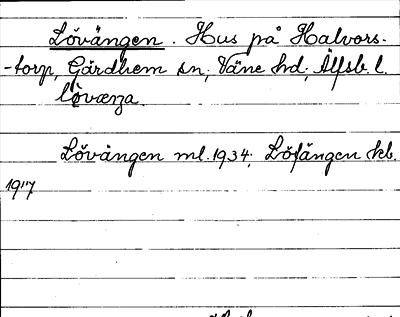 Lövängen. Hus på Halvors-
-torp, Gärdhem sn, Väne hd, Älfsb. l.
Lövängen ml. 1934; Löfängen kb.
19